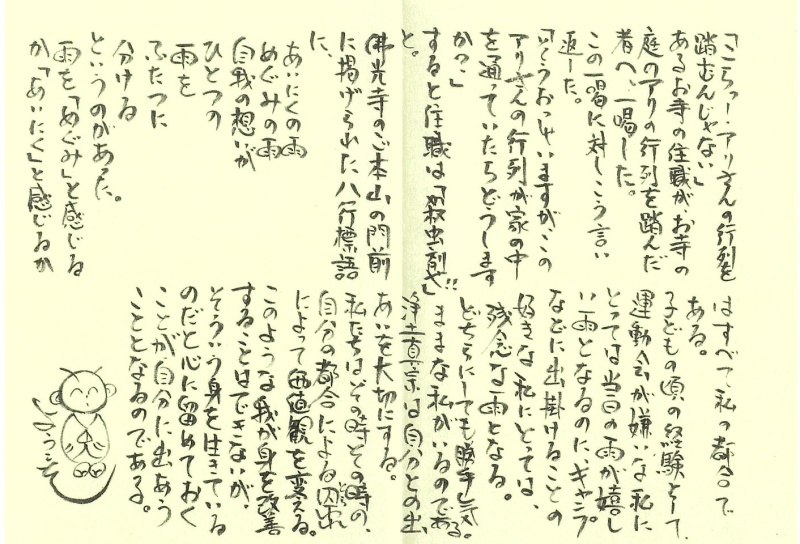 「こらっー・アリさんの行列を
踏むんじゃない」
あるお寺の住職が、お寺の
庭のアリの行列を踏んだ
者へ、一喝した。
この一喝に対しこう言い
返した。
「いうおっしゃいますが、この
アリさんの行列が家の中
を通っていたらどうします
かっ?」
すると住職は「殺虫剤や!!」
と。
佛光寺のご本山の門前
に掲げられた八行標語
に、
あいにくの雨
めぐみの雨
自我の想いが
ひとつの
雨を
ふたつに
分ける
というのがあった。
雨を「めぐみ」と感じる
か「あいにく」と感じるか
はすべて私の都合で
ある。
子どもの頃の経験として、
運動会が嫌いな私に
とっては当日の雨が嬉し
い雨となるのに、キャンプ
などに出掛けることの
好きな私にとっては、
残念な雨となる。
どちらにしても勝手気
ままな私がいるのである。
浄土真宗は自分との出
あいを大切にする。
私たちはその時その時の、
自分の都合による
によって価値観を変える。
このような我が身を改善
することはできないが、
そういう身を生きている
のだと心に留めておく
ことが自分に出あう
こととなるのである。
ようこそ